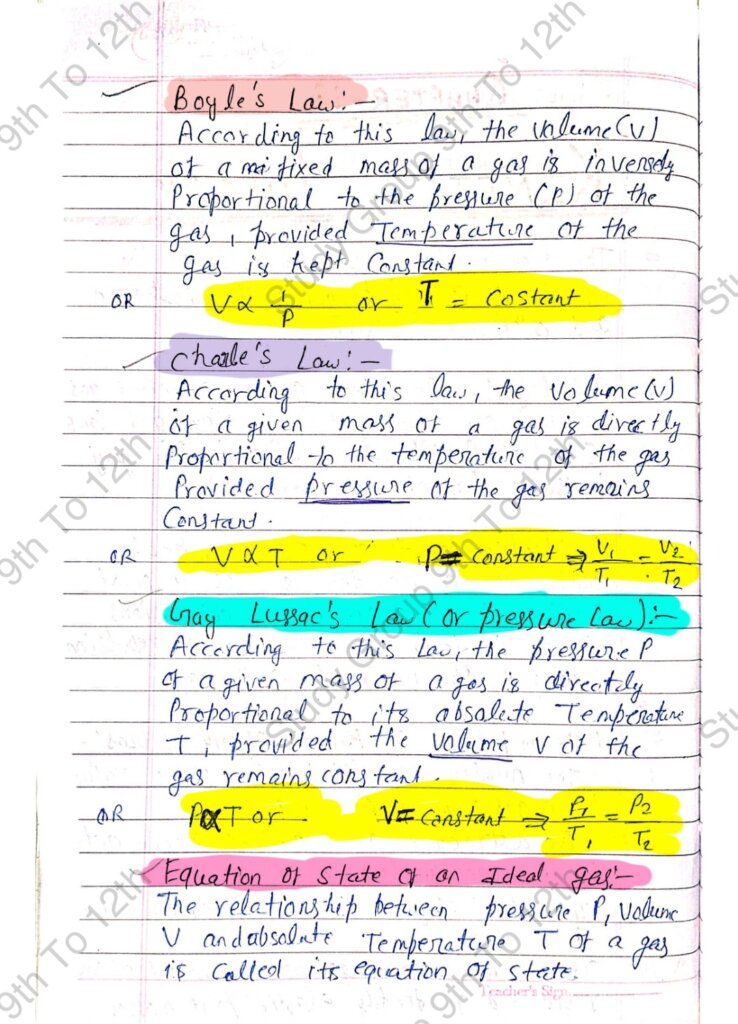 Boyle's Law:-
According to this law, the Valume(V)
of a mi fixed mass of a gas is inversely
Proportional to the pressure (P) of the
gas, provided Temperature of the
gas is kept Constant.
OR V ∝ 1/P or T = Costant
Charle's Law:-
According to this law, the Volume(V)
of a given mass of a gas is directly
Proportional to the temperature of the gas
Provided pressure of the gas remains
Constant.
OR V ∝ T or P = Constant ⇒ V1/T1 = V2/T2
Gay Lussac's Law (or pressure Law):-
According to this Law, the pressure P
of a given mass of a gas is directly
Proportional to its absolute Temperature
T, provided the Valume V of the
gas remains constant.
OR P ∝ T or V = Constant ⇒ P1/T1 = P2/T2
Equation of State of an Ideal gas:-
The relationship between pressure P, Valume
V and absolute Temperature T of a gas
is Called its equation of state.
Teacher's Sign
Study Group 9th To 12th
Study Group 9th To 12th
9th To 12th
9th To 12th
9th To 12th
9th To 12th